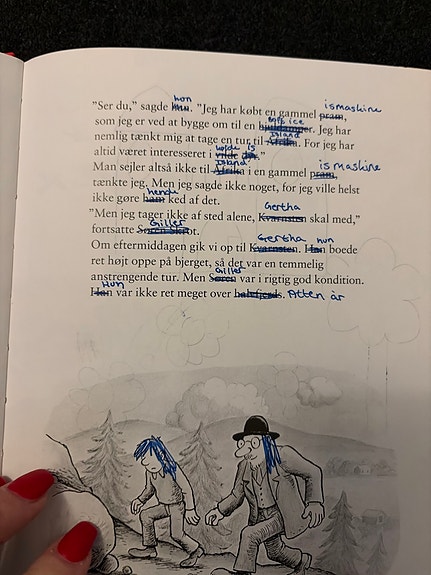 hon ismaskine
"Ser du," sagde han. "Jeg har købt en gammel pram,
som jeg er ved at bygge om til en Jeg har
Island
nemlig tænkt mig at tage en tur til Afrika. For jeg har
is
altid været interesseret i vilde dyr."
Island ismaskine
Man sejler altså ikke til Afrika i en gammel pram,
tænkte jeg. Men jeg sagde ikke noget, for jeg ville helst
hende
ikke gøre ham ked af det.
Gertha
"Men jeg tager ikke af sted alene, skal med,"
Giller
fortsatte Søren Skrot.
Gertha hun
Om eftermiddagen gik vi op til Han boede
ret højt oppe på bjerget, så det var en temmelig
Giller
anstrengende tur. Men Søren var i rigtig god kondition.
Hun
Han var ikke ret meget over halvfjerds. Atten år